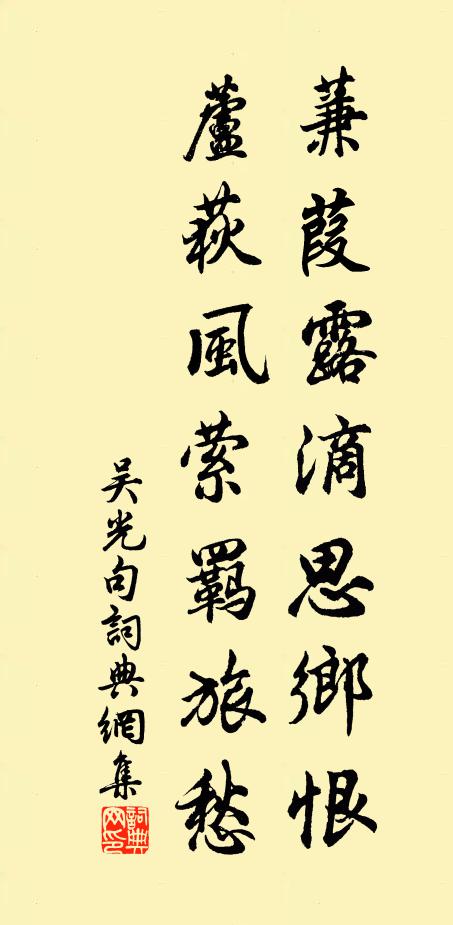 蒹葭露滴思鄉恨
蘆荻風縈羈旅愁
吴光句詞典網集
詞典网印